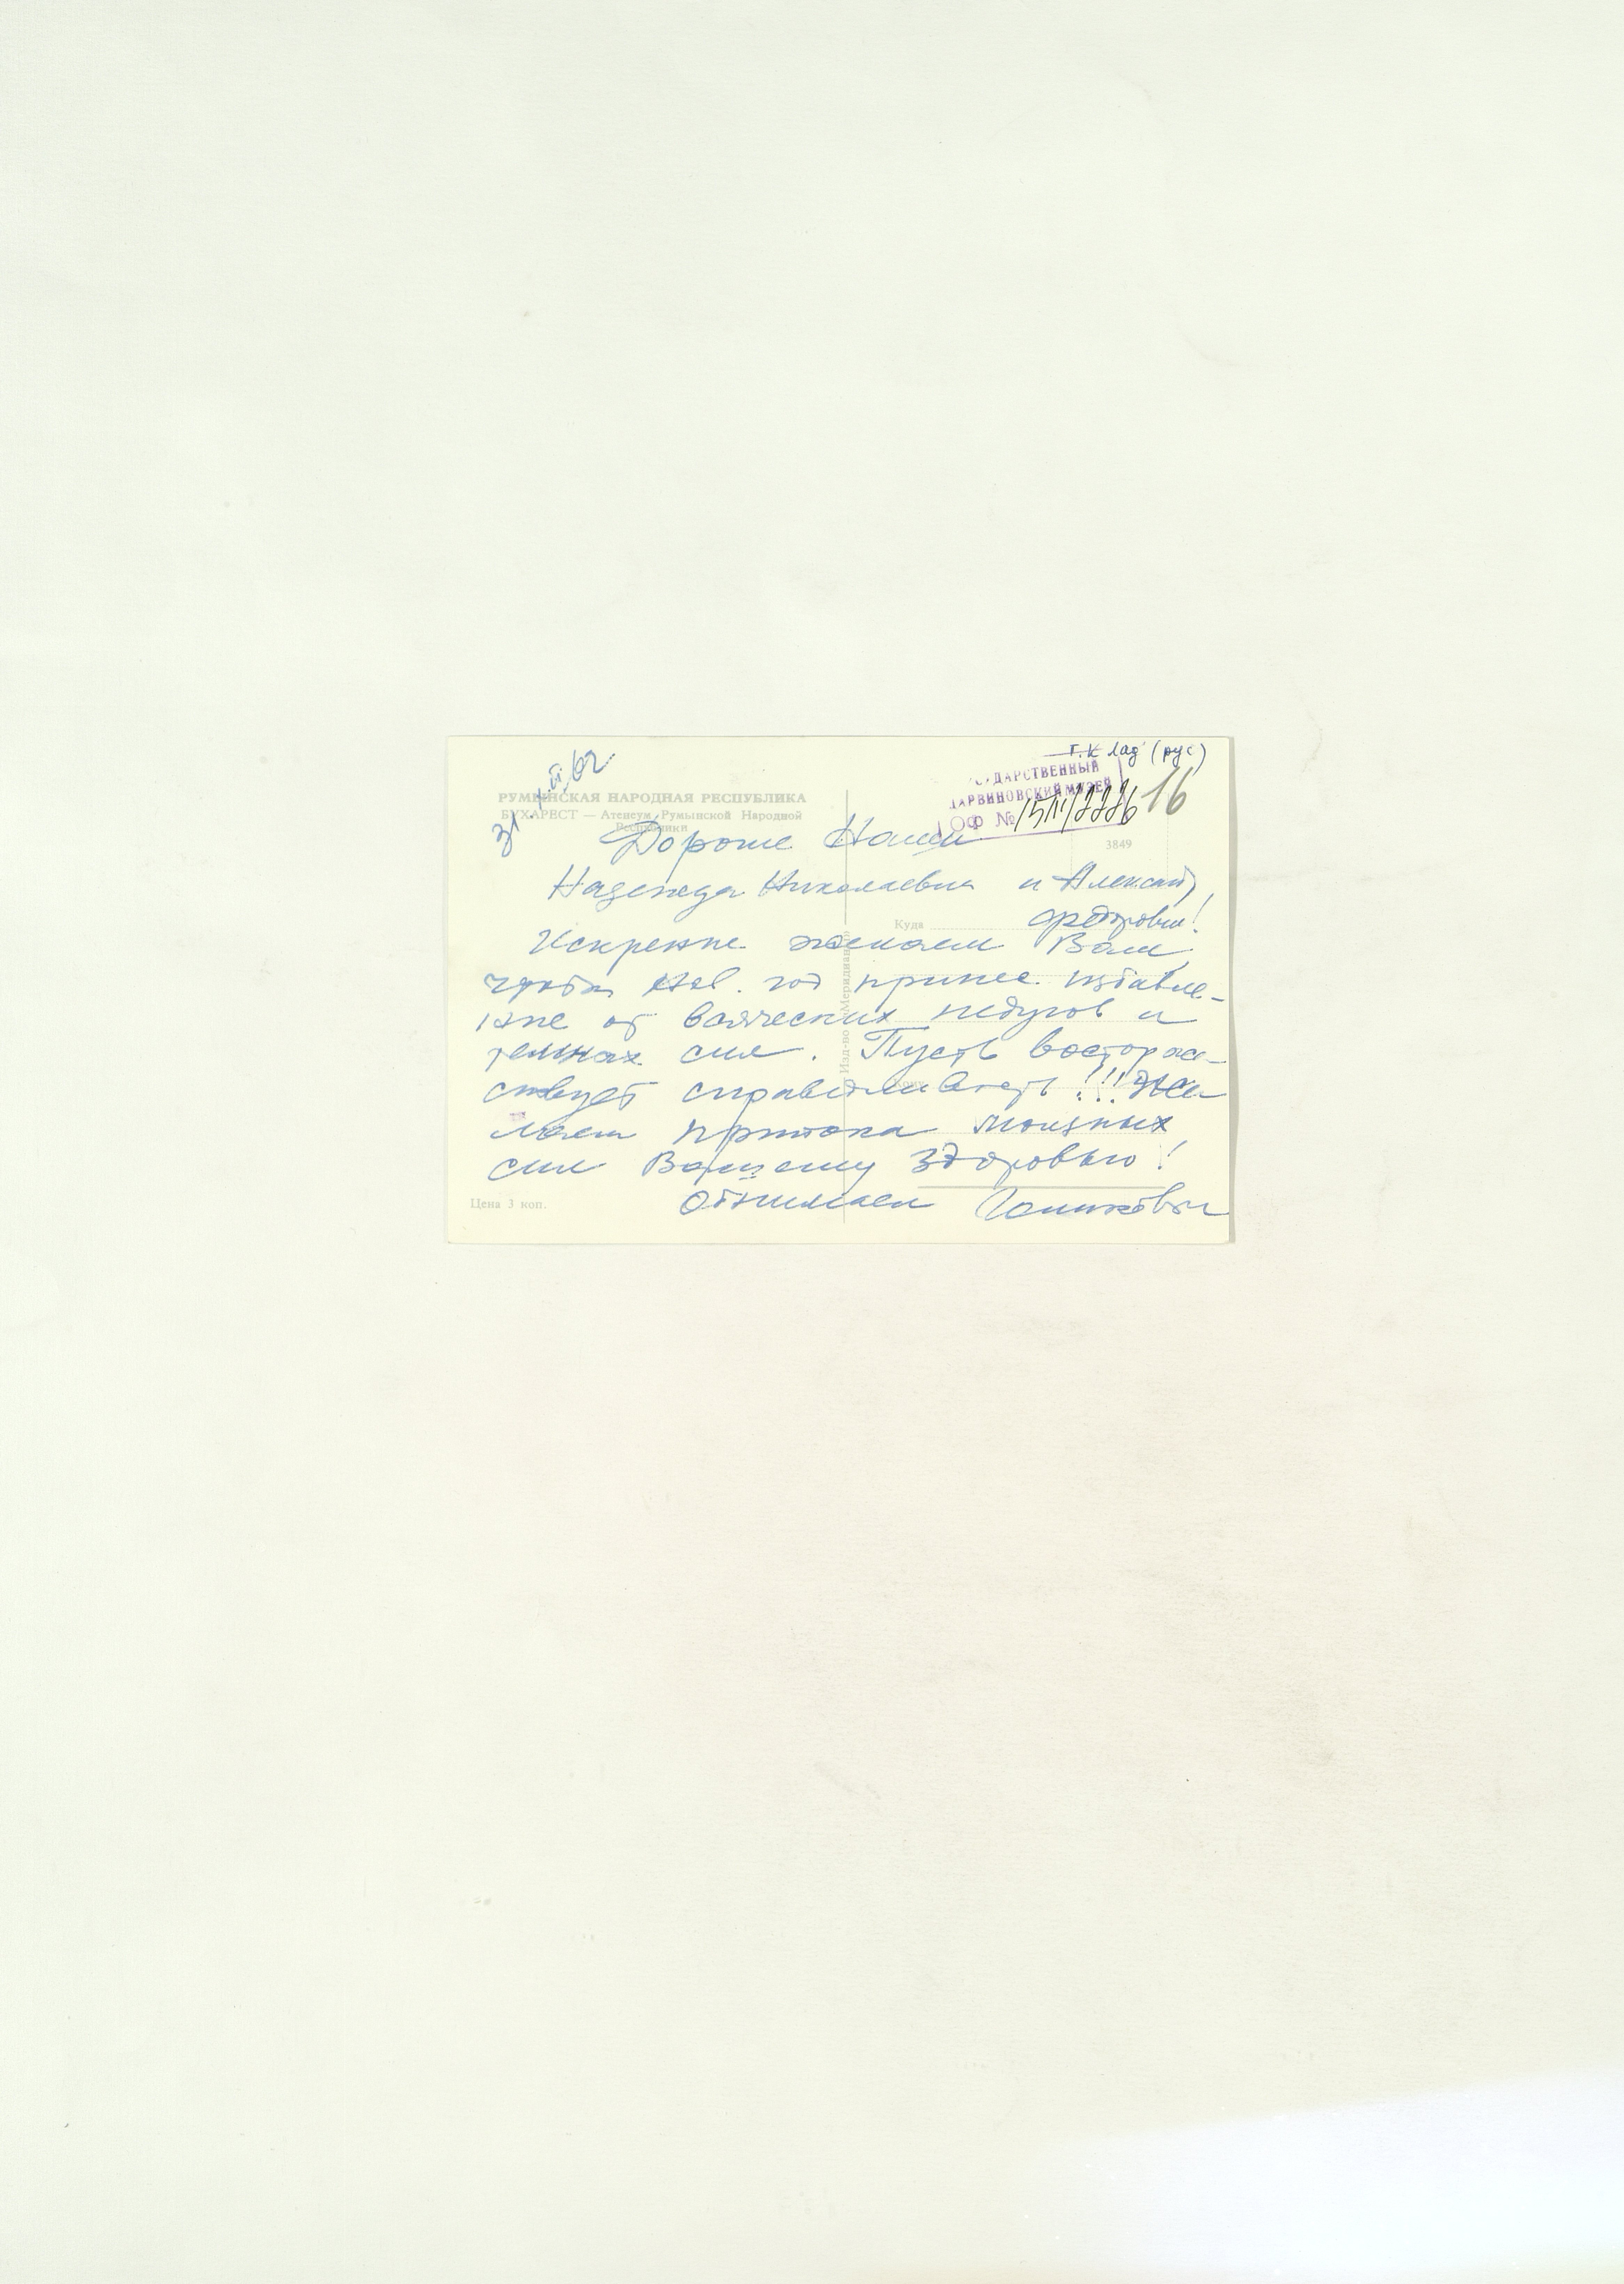 г.к лад (рус)
31.XII.62.
ГОСУДАРСТВЕННЫЙ
ДАРВИНОВСКИЙ МУЗЕЙ
ОФ № 16
РУМЫНСКАЯ НАРОДНАЯ РЕСПУБЛИКА
БУХАРЕСТ — Атенеум Румынской Народной
Республики
3849
Дорогие Наши
Надежда Николаевна и Александ
Федорович!
Куда
Искренне желаем Вам,
чтобы Нов. год принес избавле-
ние от всяческих недугов и
темных сил. Пусть восторже-
ствует справедливость!!! Же
лаем притока мощных
сил Вашему здоровью!
Обнимаем
Изд-во «Меридиане»
Цена 3 коп.